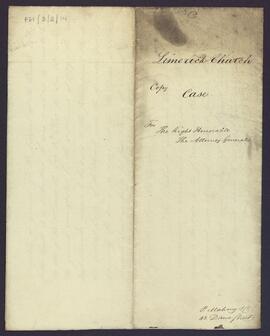 P21/3/2/14
Limerick Church
Copy
Case
For
The Right Honorable
The Attorney General
Dame Street